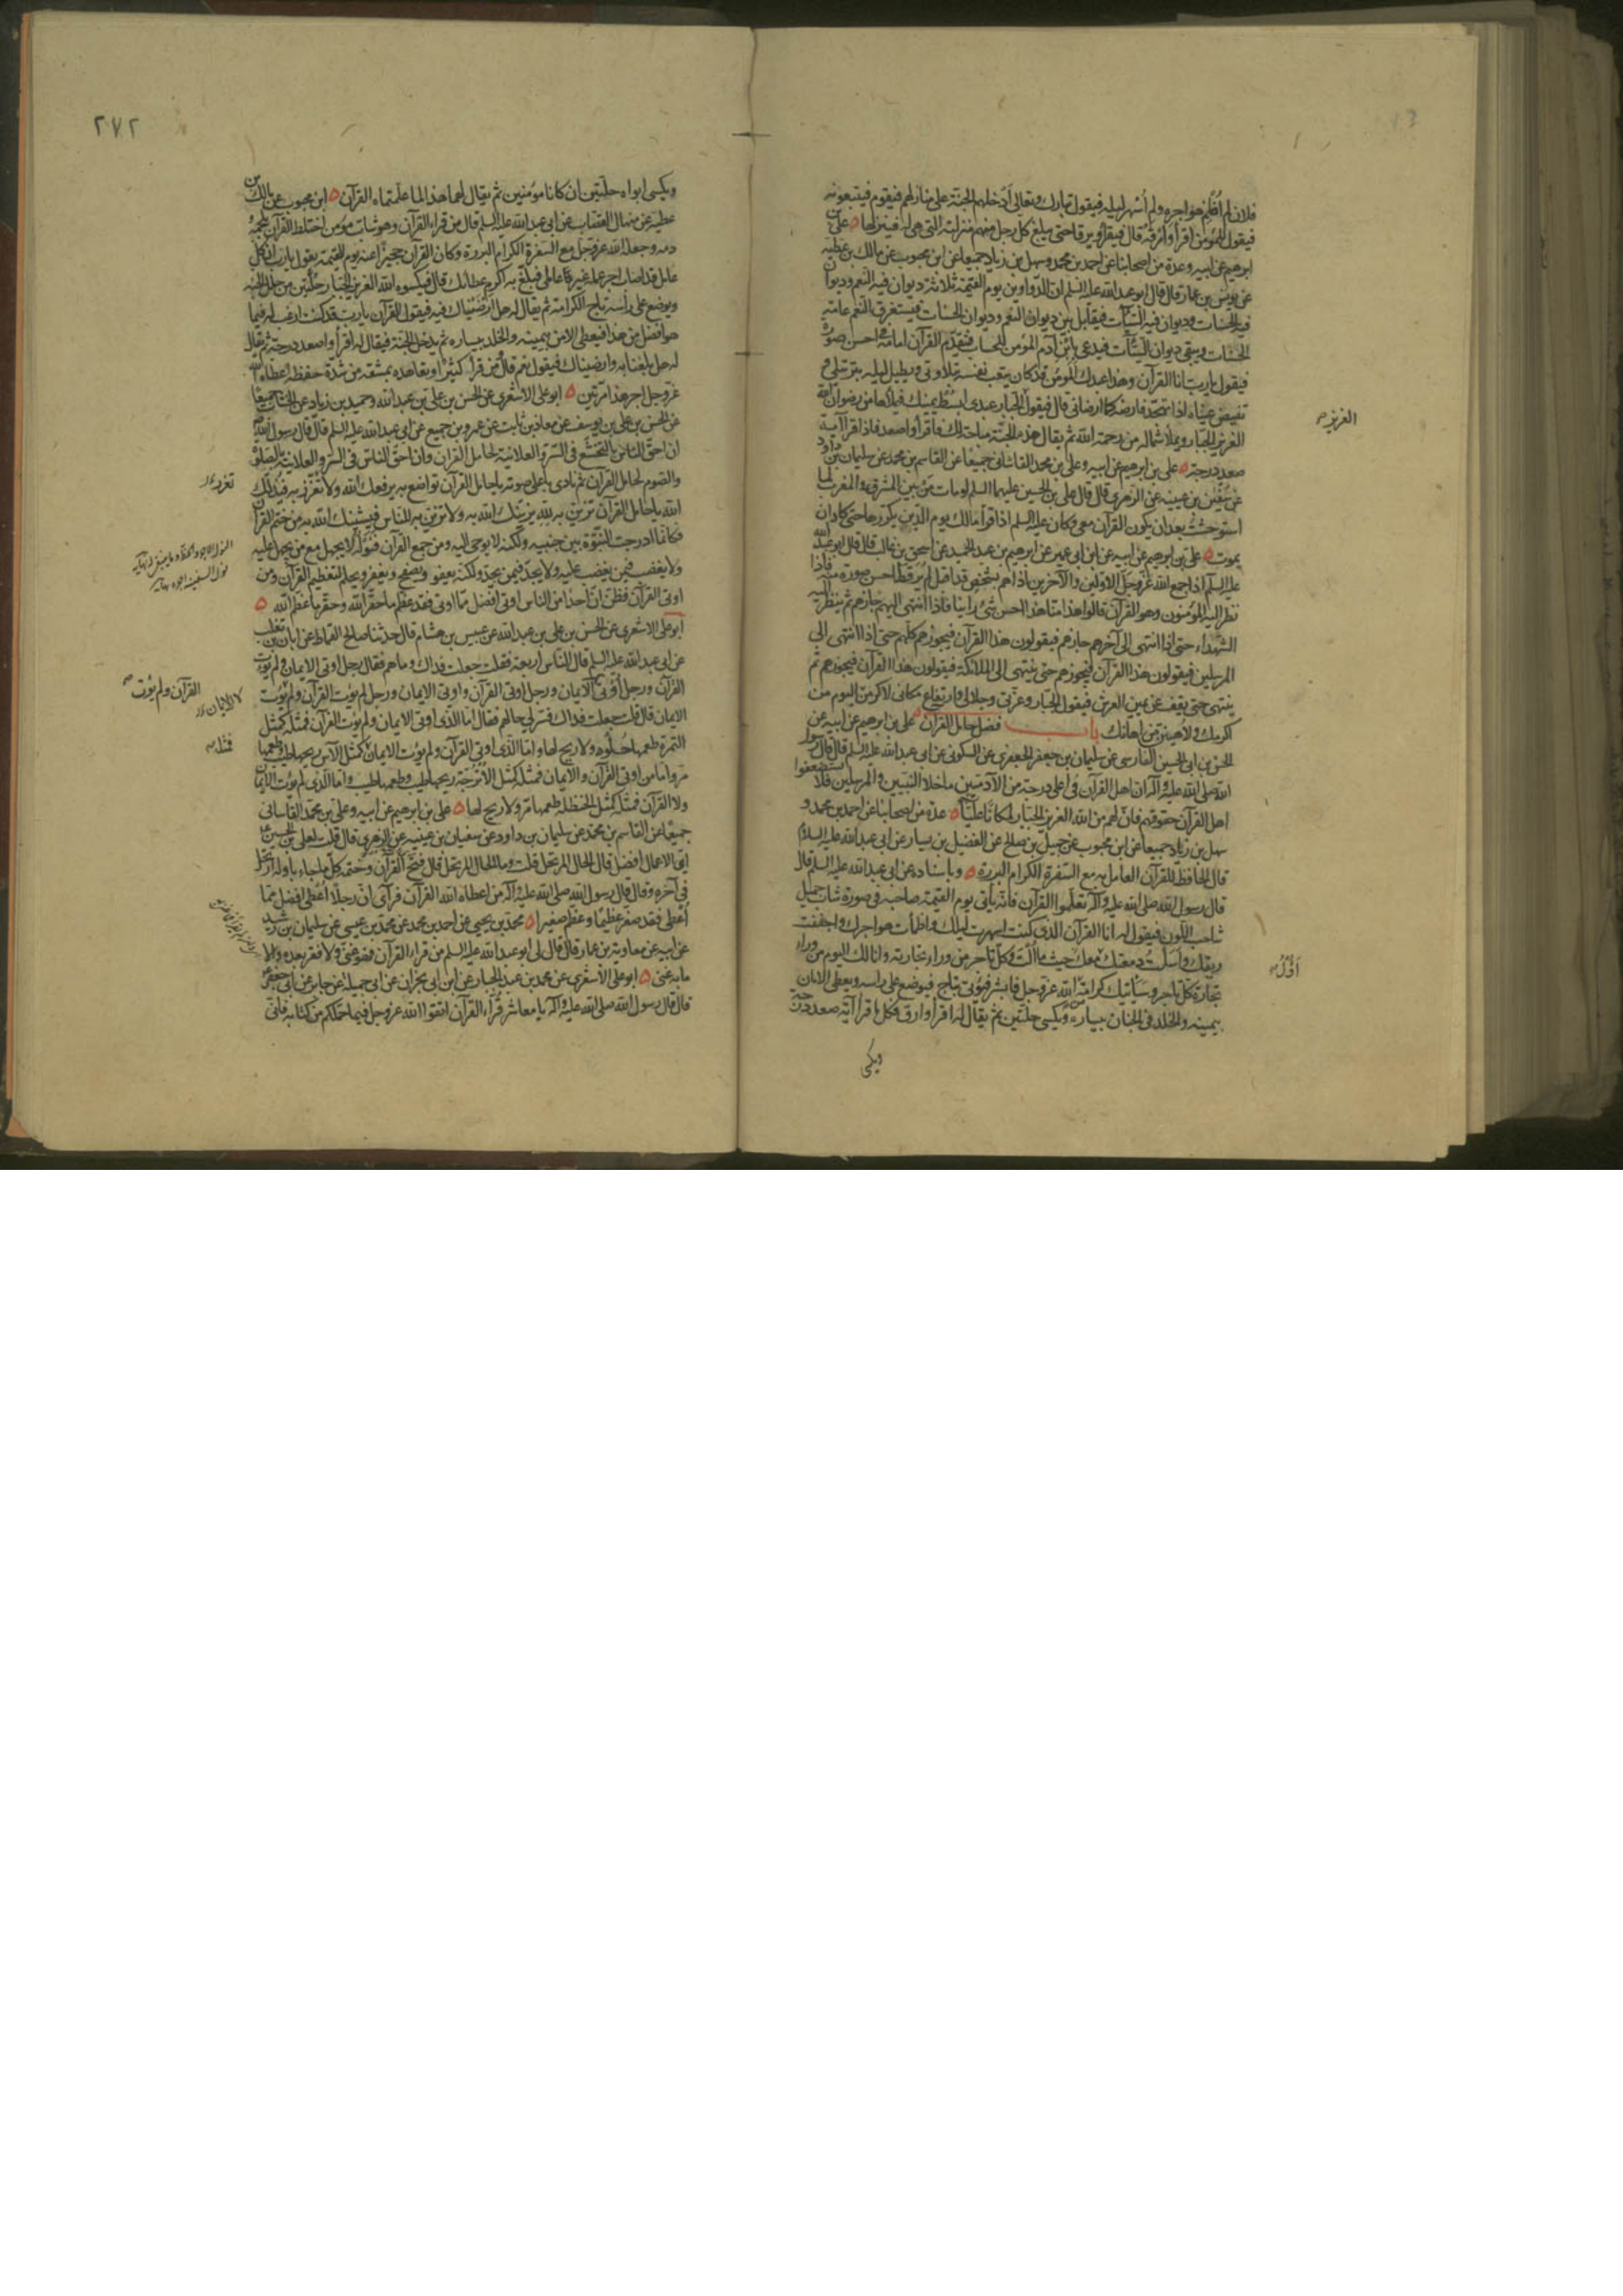 فلان لم أظمئ هواجره ولم أسهر ليله فيقول تبارك وتعالى أدخلهم الجنة على منازلهم فيقوم فيتبعونه
فيقول للمؤمن اقرأ وارقه قال فيقرأ ويرقا حتى يبلغ كل رجل منهم منزلته التي هي له فينزلها ٥ علي بن
ابرهيم عن ابيه وعدة من اصحابنا عن احمد بن محمد وسهل بن زياد جميعا عن ابن محبوب عن مالك بن عطيه
عن يونس بن عمار قال قال ابو عبد الله عليه السلم ان الدواوين يوم القيمة ثلاثة ديوان فيه النعم وديوان
فيه الحسنات وديوان فيه السيّآت فيقابل بين ديوان النعم وديوان الحسنات فيستغرق النعم عامة
الحسنات ويبقى ديوان السيّآت فيدعى بابن آدم المؤمن للحساب فيتقدم القرآن امامه في احسن صورة
فيقول يا رب انا القرآن وهذا عبدك المؤمن قد كان يتعب نفسه بتلاوتي ويطيل ليله بترتيلي و
تفيض عيناه اذا تهجد فارضه كما ارضاني قال فيقول الجبار عبدي ابسط يمينك فيملأها من رضوان الله
العزيز الجبار ويملأ شماله من رحمة الله ثم يقال هذه الجنة مباحة لك فاقرأ واصعد فاذا قرأ آية
صعد درجة ٥ علي بن ابرهيم عن ابيه وعلي بن محمد القاشاني جميعا عن القاسم بن محمد عن سليمان بن داود
عن سفين بن عيينه عن الزهري قال قال علي بن الحسين عليهما السلم لو مات من بين المشرق والمغرب لما
استوحشت بعد ان يكون القرآن معي وكان عليه السلم اذا قرأ مالك يوم الدين يكررها حتى كاد ان
يموت ٥ علي بن ابرهيم عن ابيه عن ابن ابي عمير عن ابرهيم بن عبد الحميد عن اسحق بن غالب قال قال ابو عبد الله
عليه السلم اذا جمع الله عز وجل الاولين والآخرين اذا هم بشخص قد اقبل لم ير قط احسن صورة منه فاذا
نظر اليه المؤمنون وهو القرآن قالوا هذا منا هذا احسن شيء راينا فاذا انتهى اليهم جازهم ثم ينظر اليه
الشهداء حتى اذا انتهى الى آخرهم جازهم فيقولون هذا القرآن فيجوزهم كلهم حتى اذا انتهى الى
المرسلين فيقولون هذا القرآن فيجوزهم حتى ينتهي الى الملائكة فيقولون هذا القرآن فيجوزهم ثم
ينتهي حتى يقف عن يمين العرش فيقول الجبار وعزتي وجلالي وارتفاع مكاني لاكرمن اليوم من
اكرمك ولاهينن من اهانك باب فضل حامل القرآن ٥ علي بن ابرهيم عن ابيه عن
الحسن بن ابي الحسين الفارسي عن سليمان بن جعفر الجعفري عن السكوني عن ابي عبد الله عليه السلم قال قال رسول
الله صلى الله عليه وآله ان اهل القرآن في اعلى درجة من الآدميين ما خلا النبيين والمرسلين فلا تستضعفوا
اهل القرآن حقوقهم فان لهم من الله العزيز الجبار لمكانا عليّا ٥ عدة من اصحابنا عن احمد بن محمد و
سهل بن زياد جميعا عن ابن محبوب عن جميل بن صالح عن الفضيل بن يسار عن ابي عبد الله عليه السلام
قال الحافظ للقرآن العامل به مع السفرة الكرام البررة ٥ وباسناده عن ابي عبد الله عليه السلم قال
قال رسول الله صلى الله عليه وآله تعلموا القرآن فانه يأتي يوم القيمة صاحبه في صورة شاب جميل
شاحب اللون فيقول له انا القرآن الذي كنت اسهرت ليلك واظمأت هواجرك واجففت
ريقك واسلت دمعتك معك حيث ما ألت وكل تاجر من وراء تجارته وانا لك اليوم من وراء
تجارة كل تاجر وسيأتيك كرامة من الله عز وجل فابشر فيؤتى بتاج فيوضع على راسه ويعطى الامان
بيمينه والخلد في الجنان بيساره ويكسى حلتين ثم يقال له اقرأ وارق فكلما قرأ آية صعد درجة
ويكسى
العزيز
أؤل
٢٧٢
ويكسى ابواه حلتين ان كانا مؤمنين ثم يقال لهما هذا لما علمتماه القرآن ٥ ابن محبوب عن مالك بن
عطيه عن منهال القصاب عن ابي عبد الله عليه السلم قال من قرأ القرآن وهو شاب مؤمن اختلط القرآن بلحمه و
دمه وجعله الله عز وجل مع السفرة الكرام البررة وكان القرآن حجيزا عنه يوم القيمة يقول يا رب ان كل
عامل قد اصاب اجر عمله غير عاملي فبلغ به اكرم عطائك قال فيكسوه الله العزيز الجبار حلتين من حلل الجنة
ويوضع على رأسه تاج الكرامة ثم يقال له هل ارضيناك فيه فيقول القرآن يا رب قد كنت ارغب له فيما
هو افضل من هذا فيعطى الامن بيمينه والخلد بيساره ثم يدخل الجنة فيقال له اقرأ واصعد درجة ثم يقال
له هل بلغنا به وارضيناك فيقول نعم قال ومن قرأ كثيرا وتعاهده بمشقة من شدة حفظه اعطاه الله
عز وجل اجر هذا مرتين ٥ ابو علي الاشعري عن الحسن بن علي بن عبد الله وحميد بن زياد عن الخشاب جميعا
عن الحسن بن علي بن يوسف عن معاذ بن ثابت عن عمرو بن جميع عن ابي عبد الله عليه السلم قال قال رسول الله
ان احق الناس بالتخشع في السر والعلانية لحامل القرآن وان احق الناس في السر والعلانية بالصلوة
والصوم لحامل القرآن ثم نادى باعلى صوته يا حامل القرآن تواضع به يرفعك الله ولا تعزز به فيذلك
الله يا حامل القرآن تزين به لله يزينك الله به ولا تزين به للناس فيشينك الله به من ختم القرآن
فكانما ادرجت النبوة بين جنبيه ولكنه لا يوحى اليه ومن جمع القرآن فنوله لا يجهل مع من يجهل عليه
ولا يغضب فيمن يغضب عليه ولا يحد فيمن يحد ولكنه يعفو ويصفح ويغفر ويحلم لتعظيم القرآن ومن
اوتي القرآن فظن ان احدا من الناس اوتي افضل مما اوتي فقد عظم ما حقر الله وحقر ما عظم الله ٥
ابو علي الاشعري عن الحسن بن علي بن عبد الله عن عبيس بن هشام قال حدثنا صالح القماط عن ابان بن تغلب
عن ابي عبد الله عليه السلم قال الناس اربعة فقلت جعلت فداك وما هم فقال رجل اوتي الايمان ولم يؤت
القرآن ورجل أوتي الايمان ورجل أوتي القرآن واوتي الايمان ورجل لم يؤت القرآن ولم يؤت
الايمان قال قلت جعلت فداك فسر لي حالهم فقال اما الذي اوتي الايمان ولم يؤت القرآن فمثله كمثل
التمرة طعمها حلوه ولا ريح لها واما الذي اوتي القرآن ولم يؤت الايمان كمثل الآس ريحها طيب وطعمها
مر واما من اوتي القرآن والايمان فمثله كمثل الاترجة ريحها طيب وطعمها طيب واما الذي لم يؤت الايمان
ولا القرآن فمثله كمثل الحنظلة طعمها مر ولا ريح لها ٥ علي بن ابرهيم عن ابيه وعلي بن محمد القاساني
جميعا عن القاسم بن محمد عن سليمان بن داوود عن سفيان بن عيينه عن الزهري قال قلت لعلي بن الحسين
اي الاعمال افضل قال الحال المرتحل قلت وما الحال المرتحل قال فتح القرآن وختمه كلما جاء باوله ارتحل
في آخره وقال قال رسول الله صلى الله عليه وآله من اعطاه الله القرآن فرآى ان رجلا أعطي افضل مما
أعطي فقد صغر عظيما وعظم صغيرا ٥ محمد بن يحيى عن احمد بن محمد عن محمد بن عيسى عن سليمان بن رشيد
عن ابيه عن معاوية بن عمار قال قال لي ابو عبد الله عليه السلم من قراء القرآن فهو غني ولا فقر بعده والا
ما به غنى ٥ ابو علي الاشعري عن محمد بن عبد الجبار عن ابن ابي نجران عن ابي جميلة عن جابر عن ابي جعفر
قال قال رسول الله صلى الله عليه وآله يا معاشر قرّاء القرآن اتقوا الله عز وجل فيما حملكم من كتابه فاني
تعزز
القرآن ولم يؤت
الايمان
فمثله